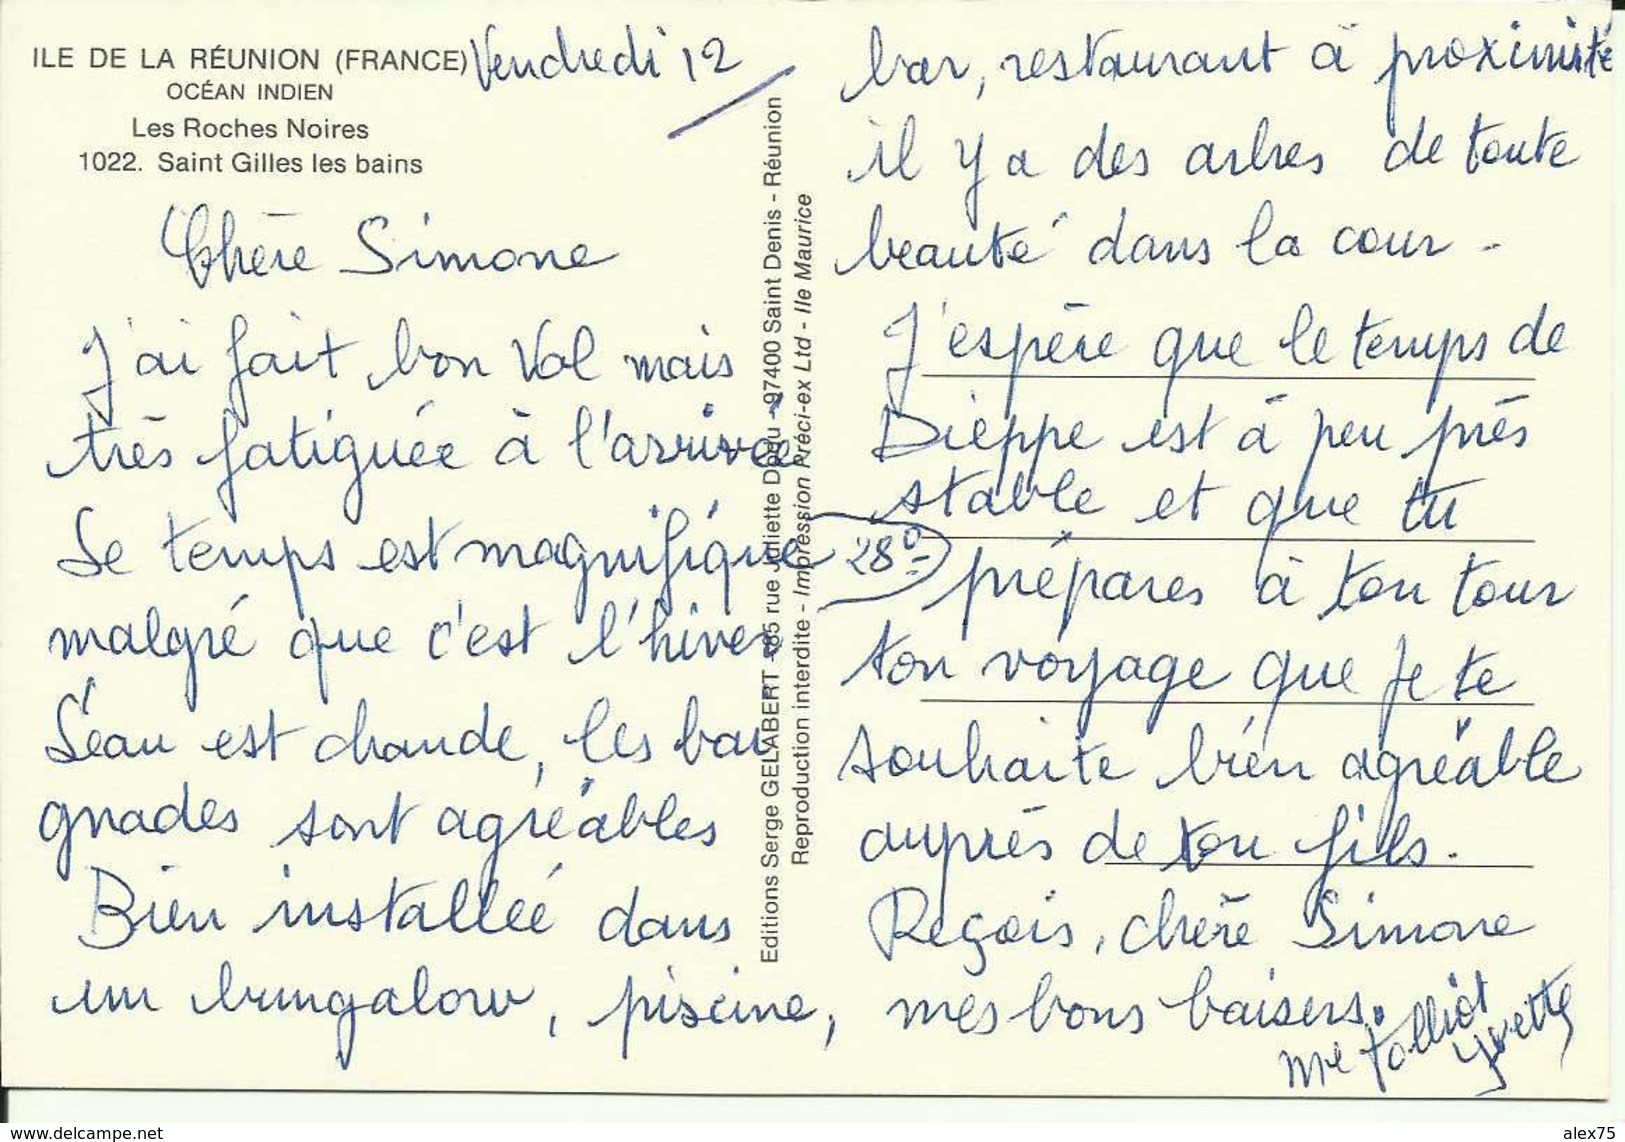 ILE DE LA RÉUNION (FRANCE)
OCÉAN INDIEN
Les Roches Noires
1022. Saint Gilles les bains
Vendredi 12
Chère Simone
J'ai fait bon Vol mais
très fatiguée à l'arrivée
Le temps est magnifique 28°
malgré que c'est l'hiver
L'eau est chaude, les bai
gnades sont agréables
Bien installée dans
un bungalow, piscine,
Editions Serge GELABERT - 85 rue Juliette Dodu - 97400 Saint Denis - Réunion
Reproduction interdite - Impression Préci-ex Ltd - Ile Maurice
bar, restaurant à proximité
il y a des arbres de toute
beauté dans la cour -
J'espère que le temps de
Dieppe est à peu près
stable et que tu
prépares à ton tour
ton voyage que je te
souhaite bien agréable
auprès de ton fils.
Reçois, chère Simone
mes bons baisers.
Mme Yvette
www.delcampe.net
alex75